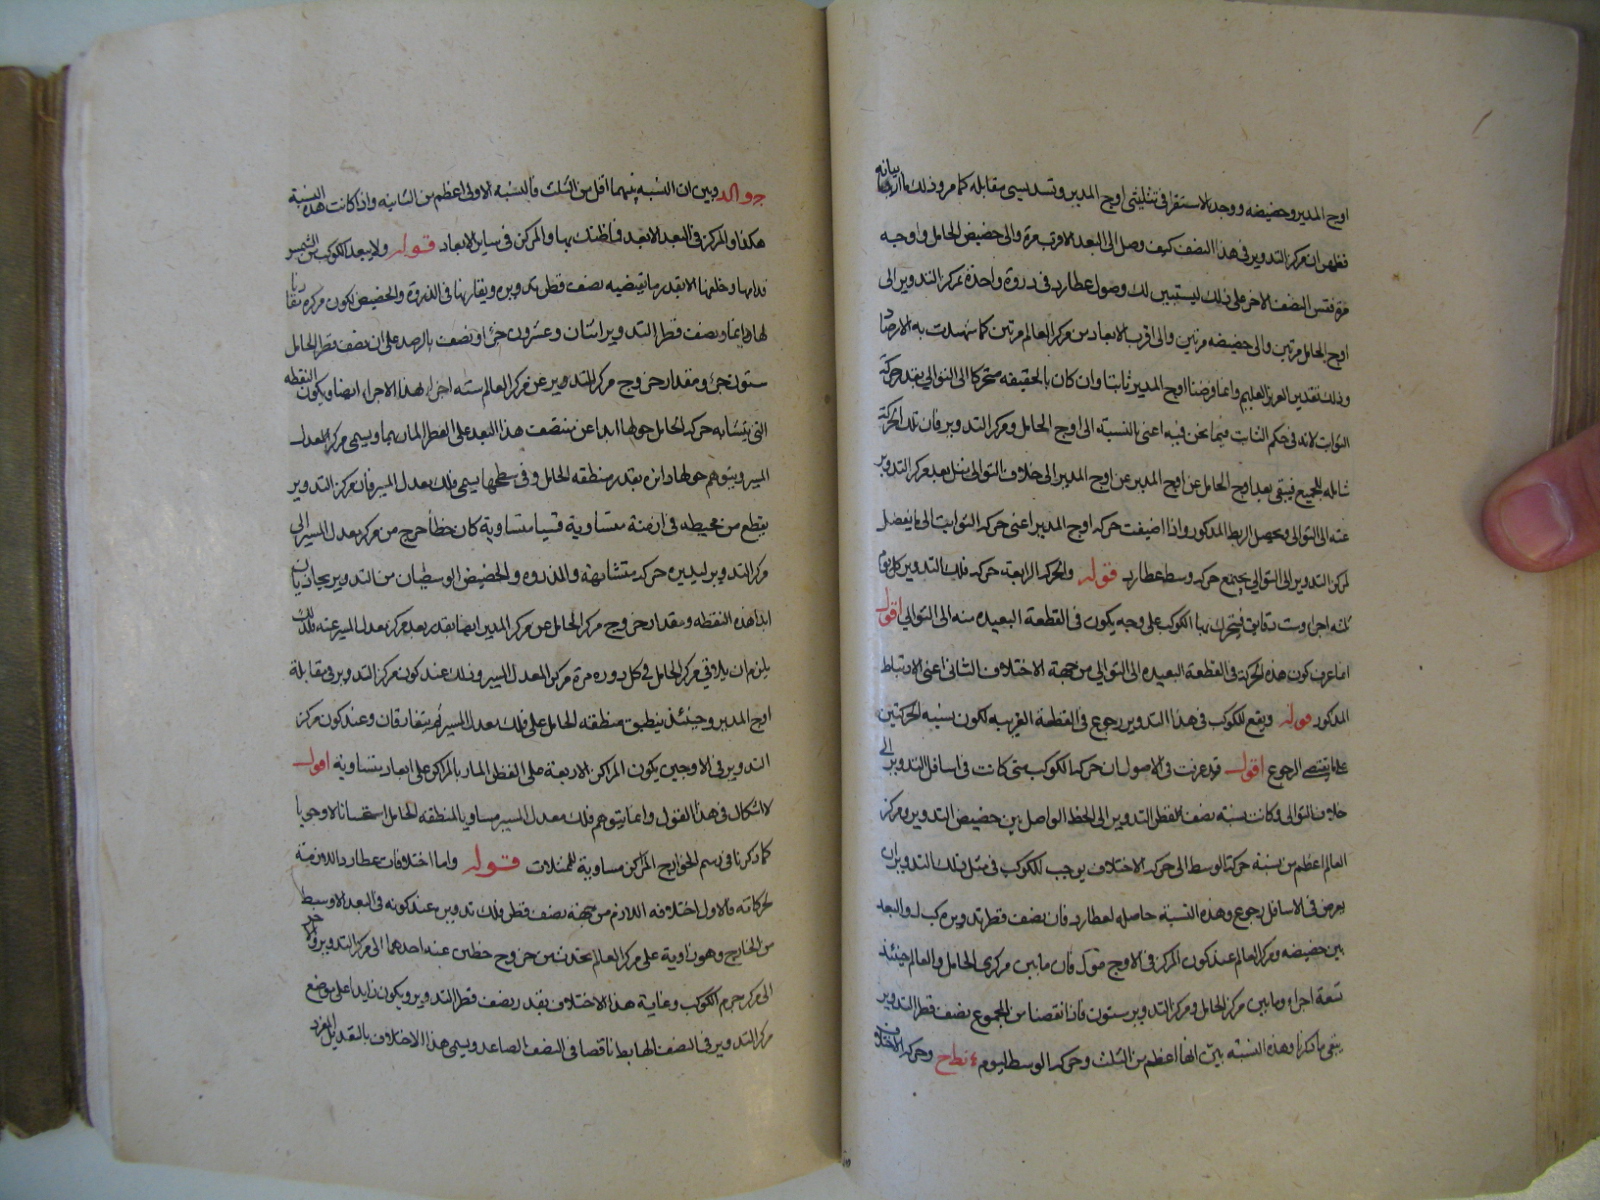 اوج المدير وحضيضه ووجد بالاستقرا في تثليثي اوج المدير وتسديسي مقابله كما مر وذلك ما اردنا بيانه
فظهر ان مركز التدوير في هذا النصف كيف وصل الى البعد الاقرب مرة والى حضيض الحامل واوجه
مرة فقس النصف الاخر على ذلك ليستبين لك وصول عطارد في دورة واحدة لمركز التدوير الى
اوج الحامل مرتين والى حضيضه مرتين والى اقرب الابعاد من مركز العالم مرتين كما شهدت به الارصاد
وذلك تقدير العزيز العليم وانما فرضنا اوج المدير ثابتا وان كان بالحقيقة متحركا الى التوالي بقدر حركة
الثوابت لانه في حكم الثابت فيما نحن فيه اعني بالنسبة الى اوج الحامل ومركز التدوير فان تلك الحركة
شاملة للجميع فيبقى بعد اوج الحامل عن اوج المدير الى خلاف التوالي مثل بعد مركز التدوير
عنه الى التوالي ويحصل الربط المذكور واذا اضيفت حركة اوج المدير اعني حركة الثوابت الى ما يفضل
لمركز التدوير الى التوالي يجتمع حركة وسط عطارد قوله والحركة الرابعة حركة فلك التدوير كل يوم
ثلثة اجزاء وست دقايق فيتحرك بها الكوكب على وجه يكون في القطعة البعيدة منه الى التوالي اقول
انما عرف كون هذه الحركة في القطعة البعيدة الى التوالي من جهة الاختلاف الثاني اعني الارتباط
المذكور قوله ويقع للكوكب في هذا التدوير رجوع في القطعة القريبة لكون نسبة الحركتين
على ما يقتضي الرجوع اقول قد عرفت في الاصول ان حركة الكوكب متى كانت في اسافل التدوير الى
خلاف التوالي وكانت نسبة نصف قطر التدوير الى الخط الواصل بين حضيض التدوير ومركز
العالم اعظم من نسبة حركة الوسط الى حركة الاختلاف يوجب للكوكب في مثل ذلك التدوير ان
يعرض في الاسافل رجوع وهذه النسبة حاصلة لعطارد فان نصف قطر تدويره كب ل والبعد
بين حضيضه ومركز العالم عند كون المركز في الاوج مول فان ما بين مركزي الحامل والعالم حينئذ
تسعة اجزاء وما بين مركز الحامل ومركز التدوير ستون فاذا نقصنا من المجموع نصف قطر التدوير
يبقى ما ذكرنا وهذه النسبة بين انها اعظم من الثلث وحركة الوسط ليوم نط ح وحركة الاختلاف
ج و الد وبين ان النسبة بينهما اقل من الثلث فالنسبة الاولى اعظم من الثانية واذا كانت هذه النسبة
هكذا والمركز في البعد الابعد فما ظنك بها والمركز في ساير الابعاد قوله ولا يبعد الكوكب من الشمس
قدامها وخلفها الا بقدر ما يقتضيه نصف قطر تدويره ويقارنها في الذروة والحضيض لكون مركزه مقارنا
لها دايما ونصف قطر التدوير اثنان وعشرون جزءا ونصف بالرصد على ان نصف قطر الحامل
ستون جزءا ومقدار خروج مركز المدير عن مركز العالم ستة اجزاء بهذا الاجزاء ايضا ويكون النقطه
التي يتشابه حركة الحامل حولها ابدا عن منتصف هذا البعد على القطر المار بهما ويسمى مركز المعدل
المسير ويتوهم حولها دايرة بقدر منطقه الحامل وفي سطحها يسمى فلك معدل المسير فان مركز التدوير
يقطع من محيطه في ازمنة متساوية قسيا متساوية كان خطا خرج من مركز معدل المسير الى
مركز التدوير ليديره حركة متشابهة والذروه والحضيض الوسطيان من التدوير يحاذيان
ابدا هذه النقطه ومقدار خروج مركز الحامل عن مركز المدير ايضا بقدر بعد مركز معدل المسير عنه فلذلك
يلزم ان يلاقي مركز الحامل في كل دوره مرة مركز المعدل المسير وذلك عند كون مركز التدوير في مقابلة
اوج المدير وحينئذ ينطبق منطقة الحامل على فلك معدل المسير ثم يتفارقان وعند كون مركز
التدوير في الاوجين يكون المراكز الاربعة على القطر المار بالمراكز على ابعاد متساوية اقول
لا اشكال في هذا القول وانما يتوهم فلك معدل المسير مساويا لمنطقه الحامل استحسانا لا وجوبا
كما ذكرنا في رسم الخوارج المراكز مساوية للممثلات قوله واما اختلافات عطارد اللازمة
لحركاته فالاول اختلافه اللازم من جهة نصف قطر فلك تدويره عند كونه في البعد الاوسط
من الخارج وهو زاوية على مركز العالم تحدث من خروج خطين عنه احدهما الى مركز التدوير والاخر
الى مركز جرم الكوكب وغاية هذا الاختلاف بقدر نصف قطر التدوير ويكون زايدا على موضع
مركز التدوير في النصف الهابط ناقصا في النصف الصاعد ويسمى هذا الاختلاف بالتعديل المفرد